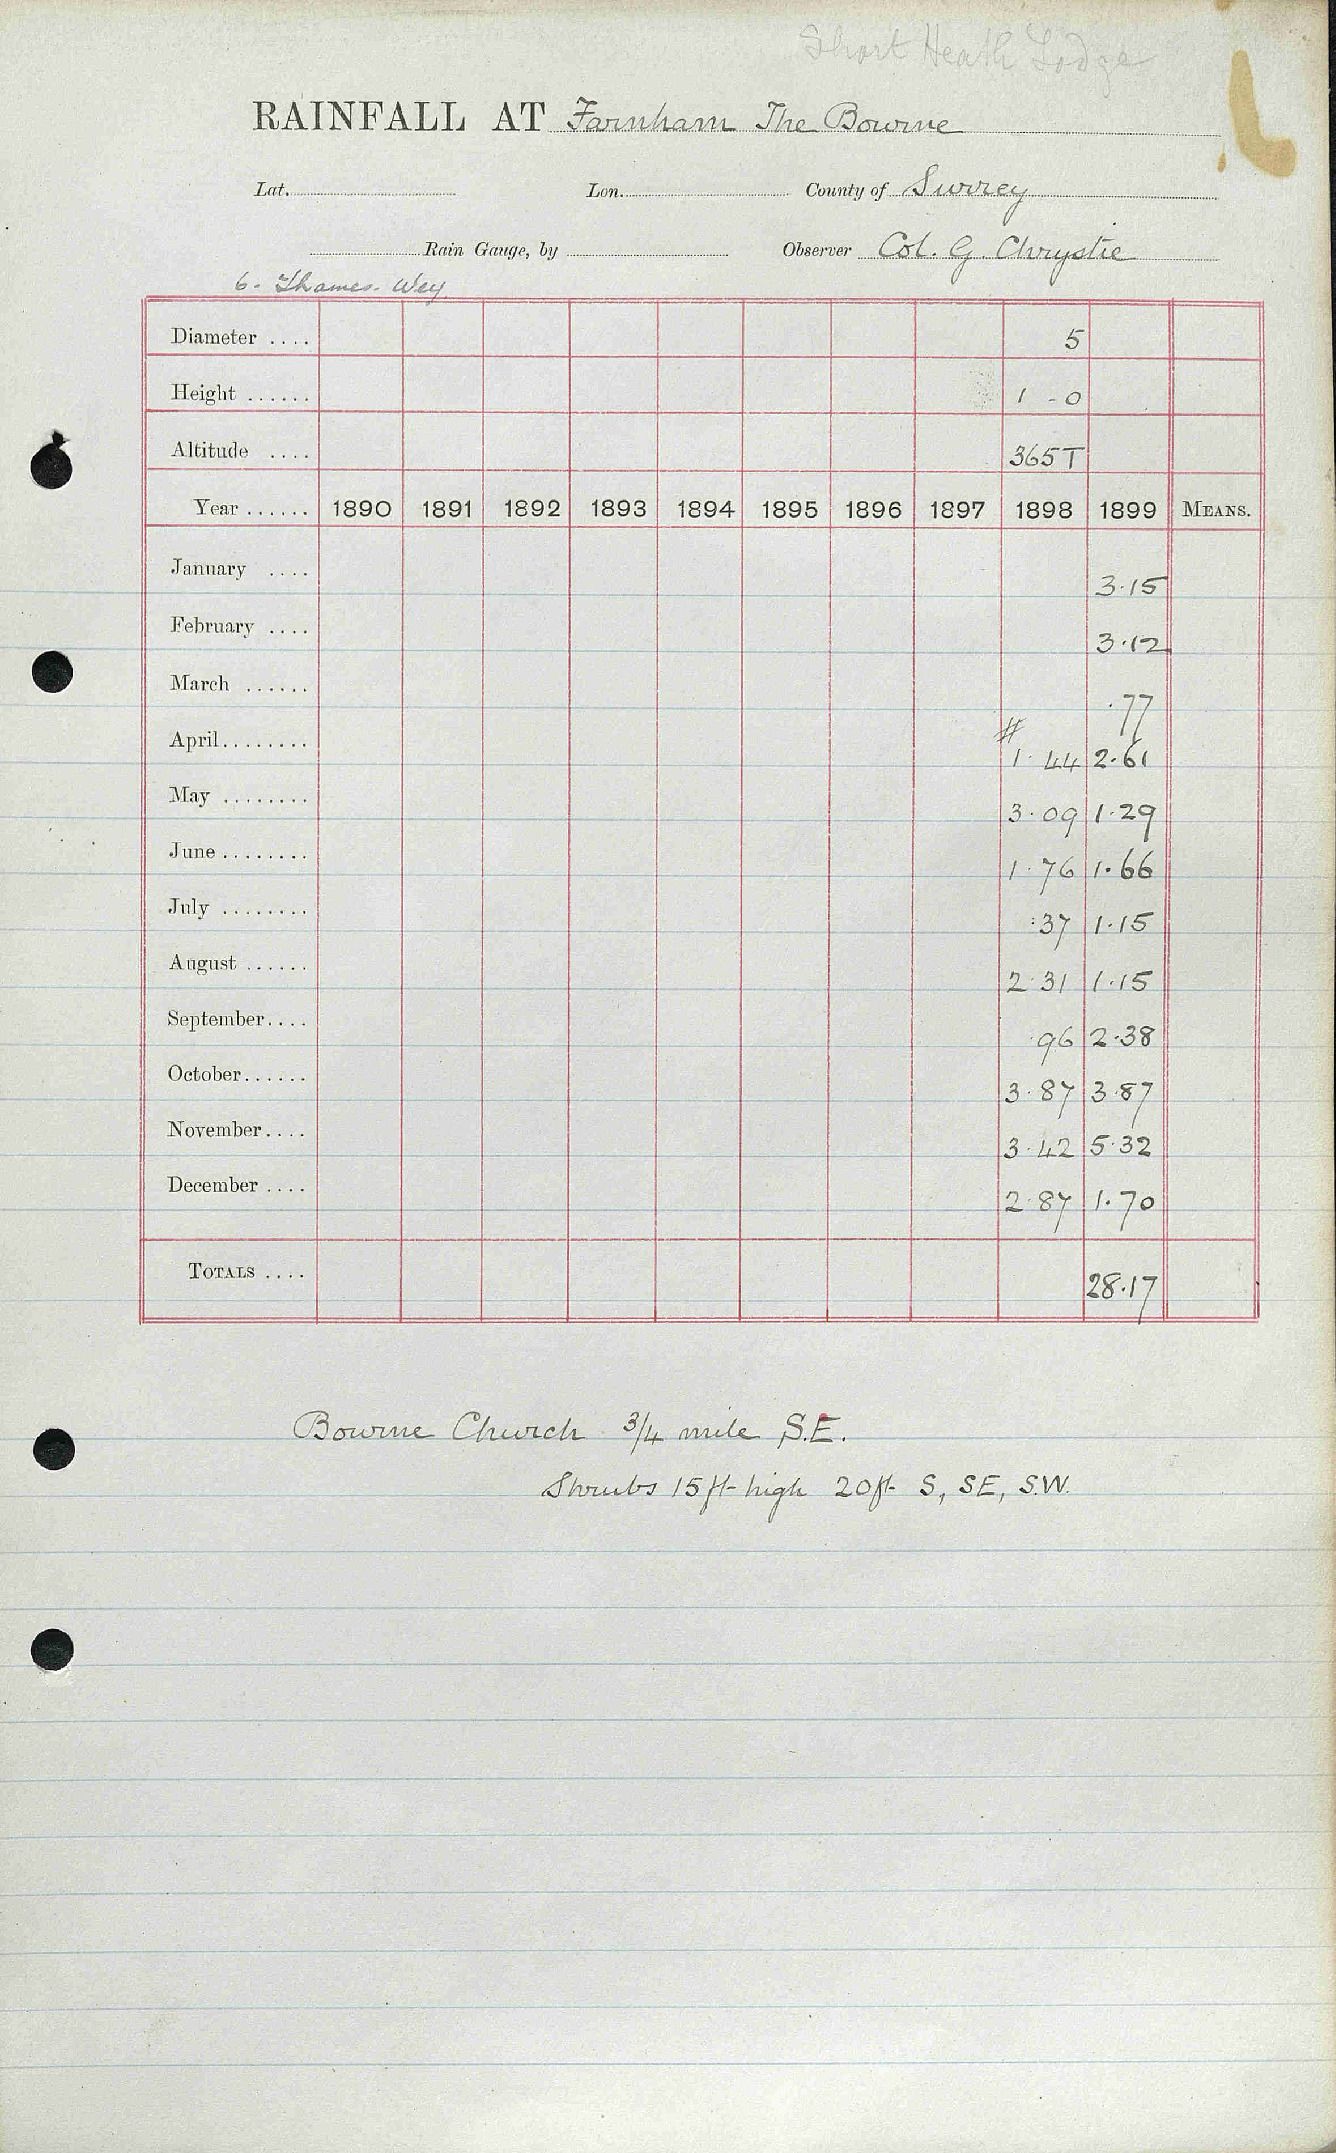 Short Heath Lodge
RAINFALL AT Farnham The Bourne
Lat. Lon. County of Surrey
Rain Gauge, by Observer Col. G. Chrystie
6. Thames. Wey
Diameter .... 5
Height ...... 1 - 0
Altitude .... 365 T
Year ...... 1890 1891 1892 1893 1894 1895 1896 1897 1898 1899 MEANS.
January .... 3.15
February .... 3.12
March ...... .77
#
April........ 1.44 2.61
May ........ 3.09 1.29
June ........ 1.76 1.66
July ........ .37 1.15
August ...... 2.31 1.15
September.... .96 2.38
October...... 3.87 3.87
November.... 3.42 5.32
December .... 2.87 1.70
TOTALS .... 28.17
Bourne Church 3/4 mile S.E.
Shrubs 15 ft high 20 ft S, SE, S.W.